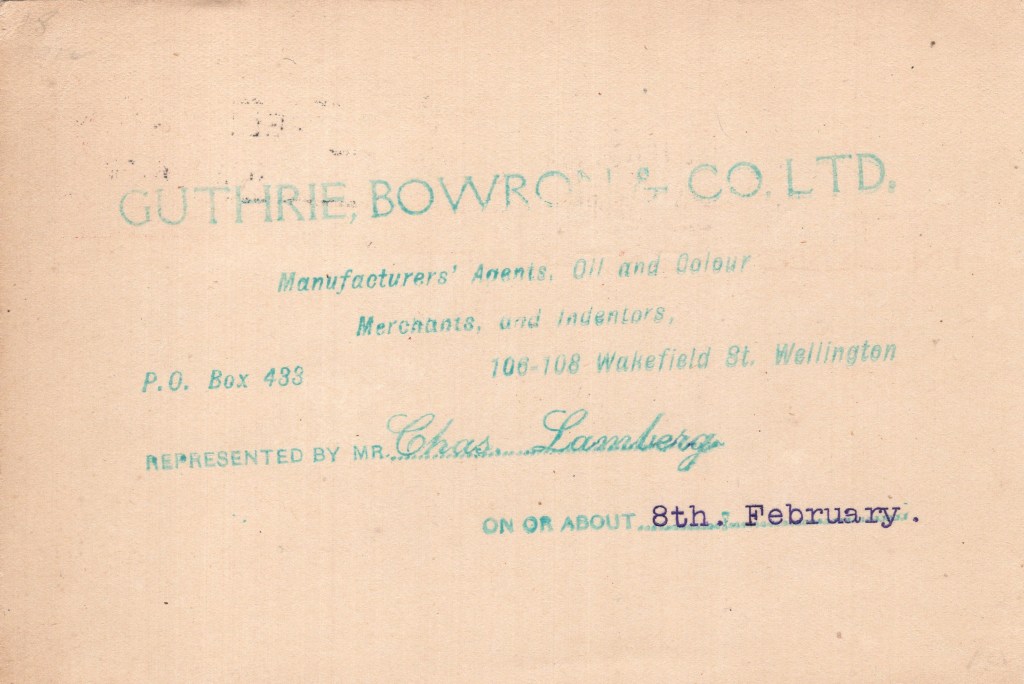 GUTHRIE, BOWRON & CO. LTD.
Manufacturers' Agents, Oil and Colour
Merchants, and Indentors,
P.O. Box 433 106-108 Wakefield St. Wellington
REPRESENTED BY MR. Chas. Lamberg
ON OR ABOUT 8th. February.